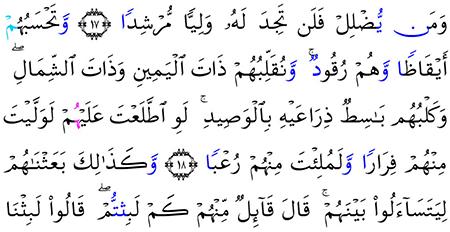 وَمَن يُضْلِلْ فَلَن تَجِدَ لَهُۥ وَلِيًّا مُّرْشِدًا ۝١٧ وَتَحْسَبُهُمْ
أَيْقَاظًا وَهُمْ رُقُودٌ ۚ وَنُقَلِّبُهُمْ ذَاتَ ٱلْيَمِينِ وَذَاتَ ٱلشِّمَالِ ۖ
وَكَلْبُهُم بَـٰسِطٌ ذِرَاعَيْهِ بِٱلْوَصِيدِ ۚ لَوِ ٱطَّلَعْتَ عَلَيْهِمْ لَوَلَّيْتَ
مِنْهُمْ فِرَارًا وَلَمُلِئْتَ مِنْهُمْ رُعْبًا ۝١٨ وَكَذَٰلِكَ بَعَثْنَـٰهُمْ
لِيَتَسَآءَلُوا۟ بَيْنَهُمْ ۚ قَالَ قَآئِلٌ مِّنْهُمْ كَمْ لَبِثْتُمْ ۖ قَالُوا۟ لَبِثْنَا